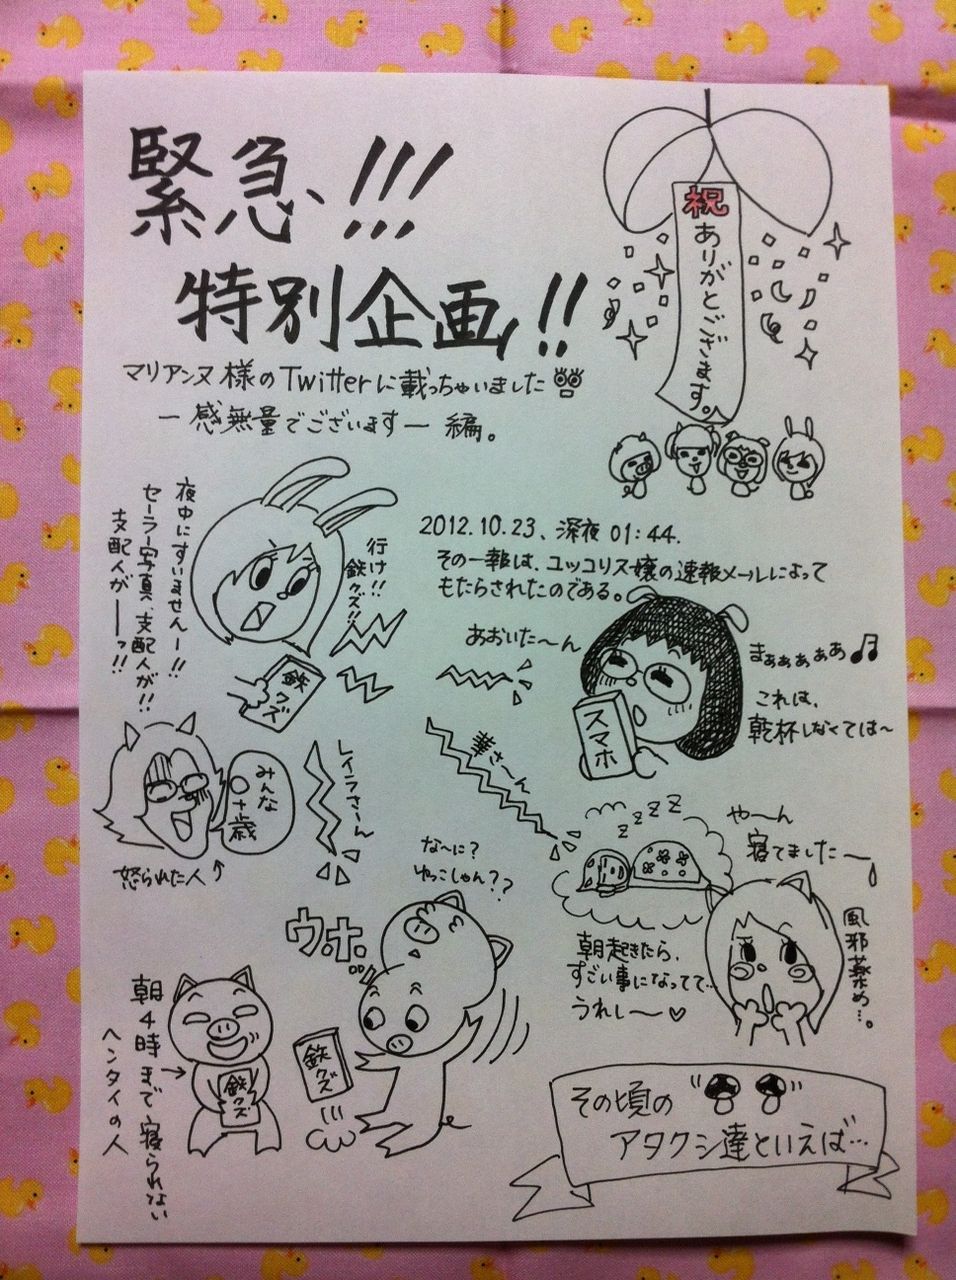 緊急、!!!
特別企画、!!
祝
ありがとござます。
マリアンヌ様のTwitterに載っちゃいました
ー感無量でございますー 編。
2012.10.23、深夜 01:44.
その一報は、ユッコリス嬢の速報メールによって
もたらされたのである。
夜中にすいませんー!!
セーラー写真、支配人が!!
支配人がーーッ!!
行け!!
鉄クズ!!
鉄クズ
あおいた〜ん
まぁぁぁぁぁ♫
これは、
乾杯しなくては〜
スマホ
華さーん
レイラさーん
みんな
〇十歳
怒られた人
な〜に?
ゆっこしゃん??
ZZZZ
や〜ん
寝てました〜
風邪薬め…。
朝起きたら、
すごい事になってて…
うれし〜♡
ウ.ホ.
鉄クズ
鉄クズ
朝4時まで寝られない
ヘンタイの人
その頃の
アタクシ達といえば…